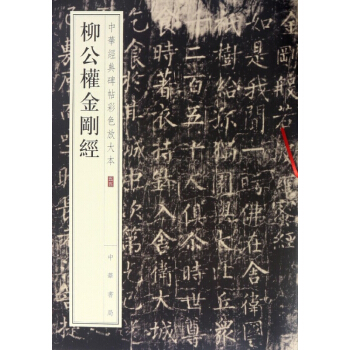 柳公權金剛經
中華經典碑帖彩色放大本
中華書局
金剛般若波羅蜜經
如是我聞一時佛在舍衛國
祇樹給孤獨園與大比丘衆
千二百五十人俱尒時世尊
食時著衣持鉢入舍衛大城
乞食於其城中次第乞已